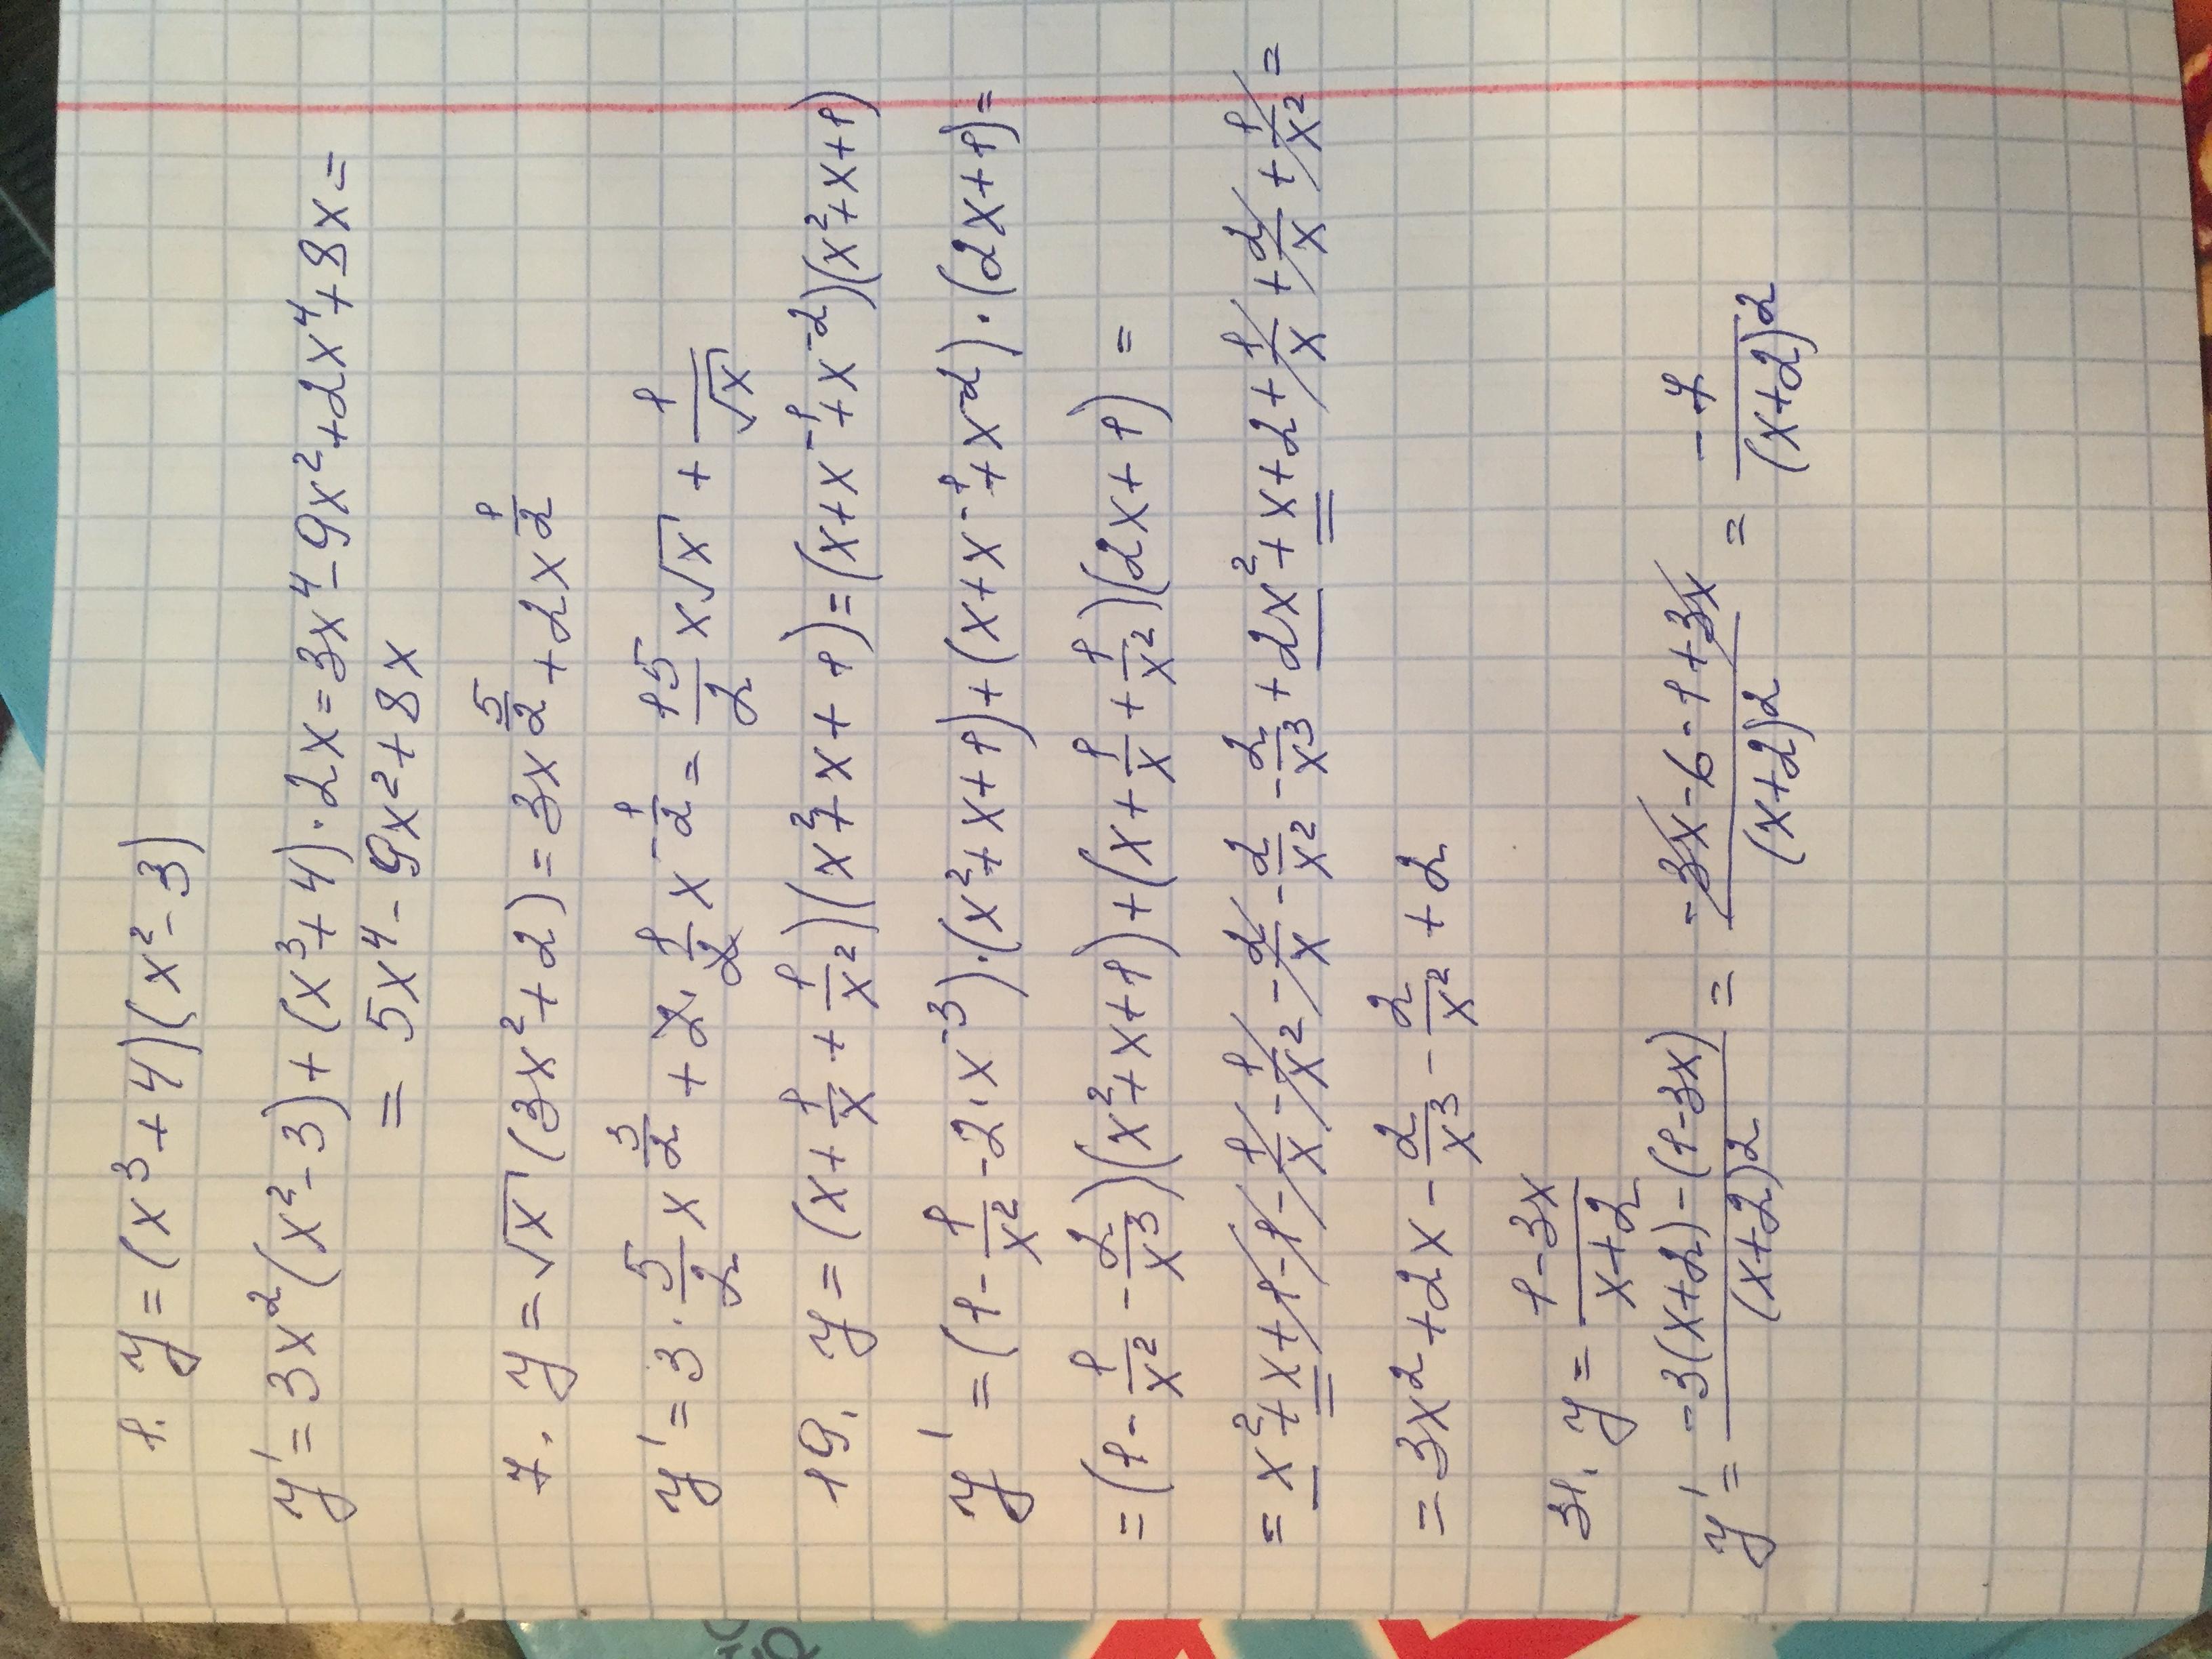 1. y = (x³+4)(x²-3)
y' = 3x²(x²-3)+(x³+4)·2x = 3x⁴-9x²+2x⁴+8x =
= 5x⁴-9x²+8x
7. y = √x (3x²+2) = 3x^(5/2) + 2x^(1/2)
y' = 3·5/2 x^(3/2) + 2·1/2 x^(-1/2) = 15/2 x√x + 1/√x
19. y = (x+1/x+1/x²)(x²+x+1) = (x+x⁻¹+x⁻²)(x²+x+1)
y' = (1-1/x²-2·x⁻³)·(x²+x+1)+(x+x⁻¹+x⁻²)·(2x+1) =
= (1-1/x²-2/x³)(x²+x+1)+(x+1/x+1/x²)(2x+1) =
= x²+x+1-1-1/x-1/x²-2/x-2/x²-2/x³+2x²+x+2+1/x+2/x+1/x² =
= 3x²+2x-2/x³-2/x²+2
31. y = (1-3x)/(x+2)
y' = (-3(x+2)-(1-3x))/(x+2)² = (-3x-6-1+3x)/(x+2)² = -7/(x+2)²